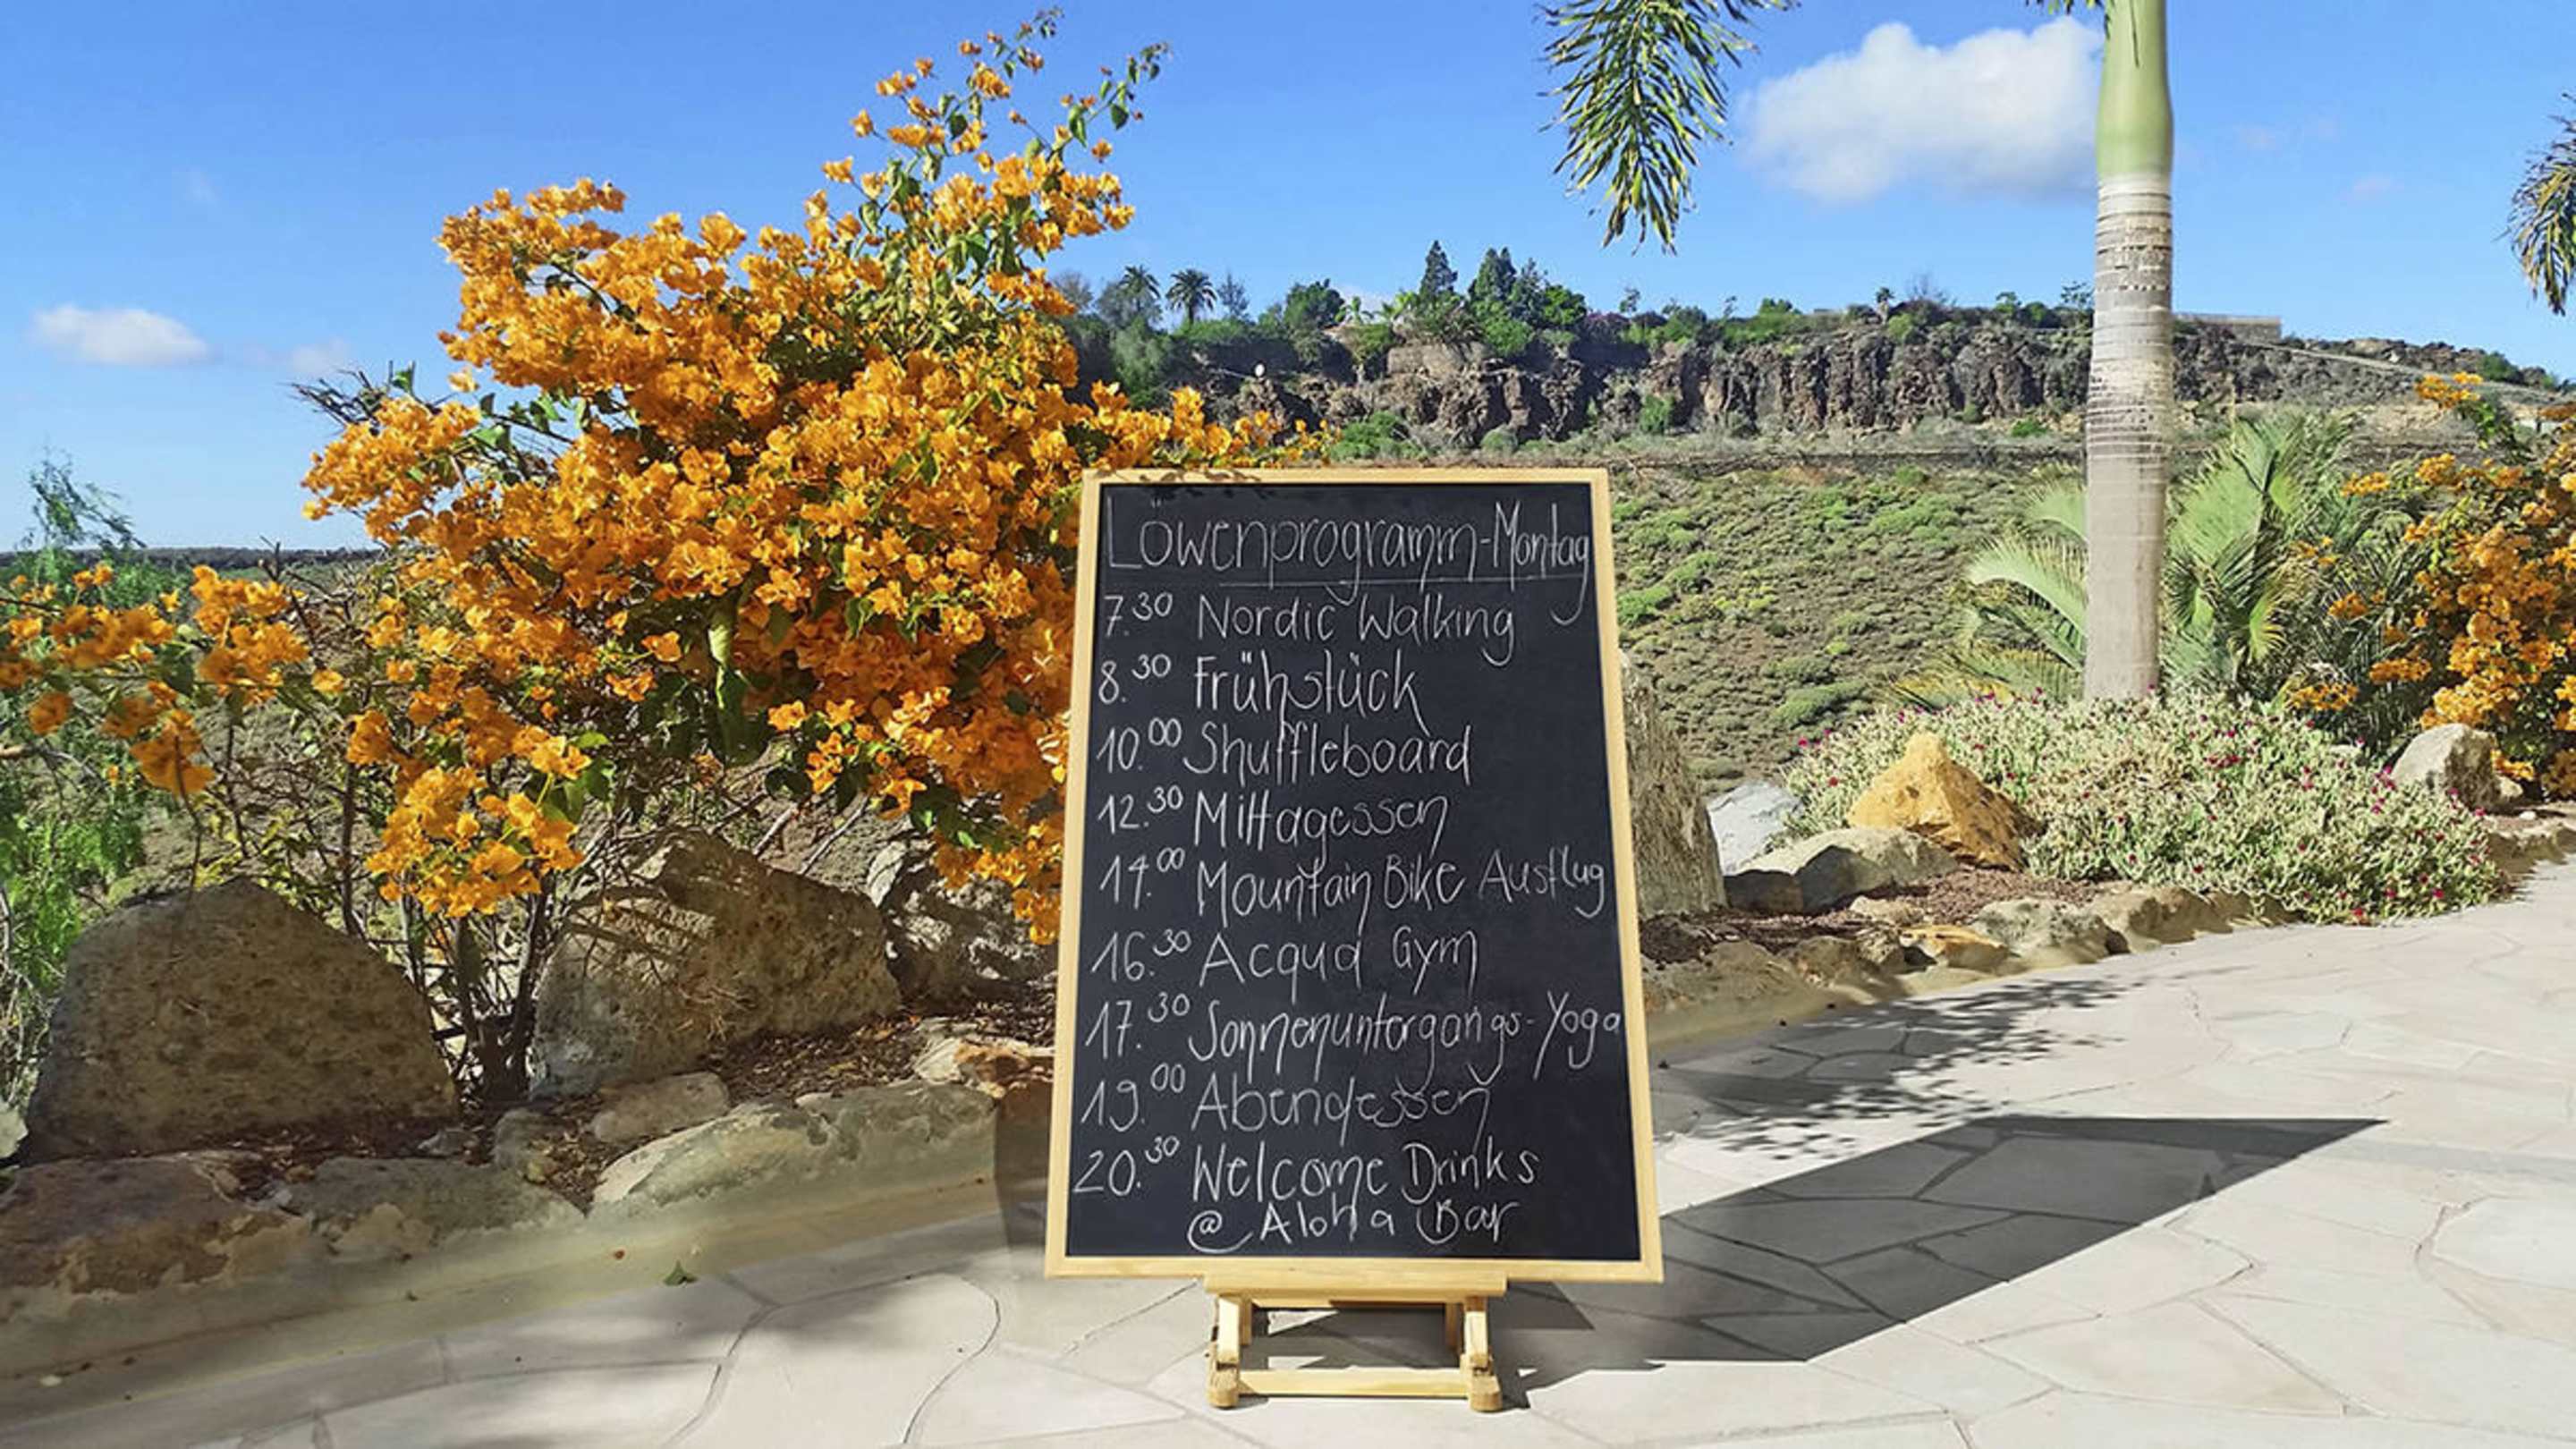 Löwenprogramm-Montag
7.30 Nordic Walking
8.30 Frühstück
10.00 Shuffleboard
12.30 Mittagessen
14.00 Mountain Bike Ausflug
16.30 Acqua Gym
17.30 Sonnenuntergangs-Yoga
19.00 Abendessen
20.30 Welcome Drinks
@ Aloha Bar